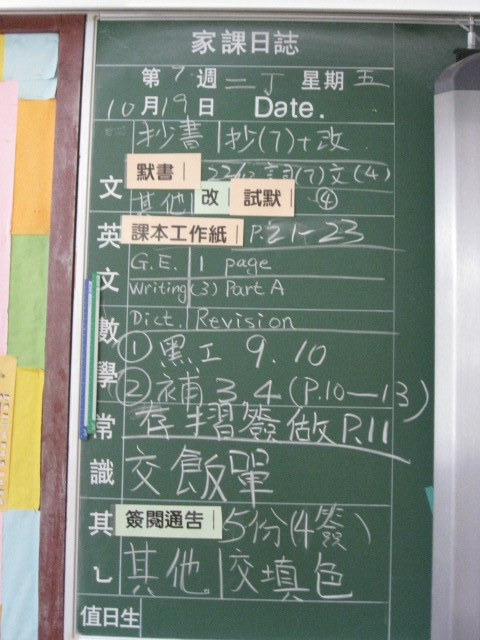 家課日誌
第7週 二丁 星期五
10月19日 Date.
抄書 抄(7)+改
文 默書 22/10 詞(7)文(4)
其他 改 試默 ④
英 課本工作紙 P.21-23
G.E. 1 page
文 Writing (3) Part A
Dict. Revision
數 ① 黑工 9.10
學 ② 補 3 4 (P.10—13)
常 存習簽做P.11
識 交飯單
其 簽閱通告 5份(4簽)
其他 交填色
值日生